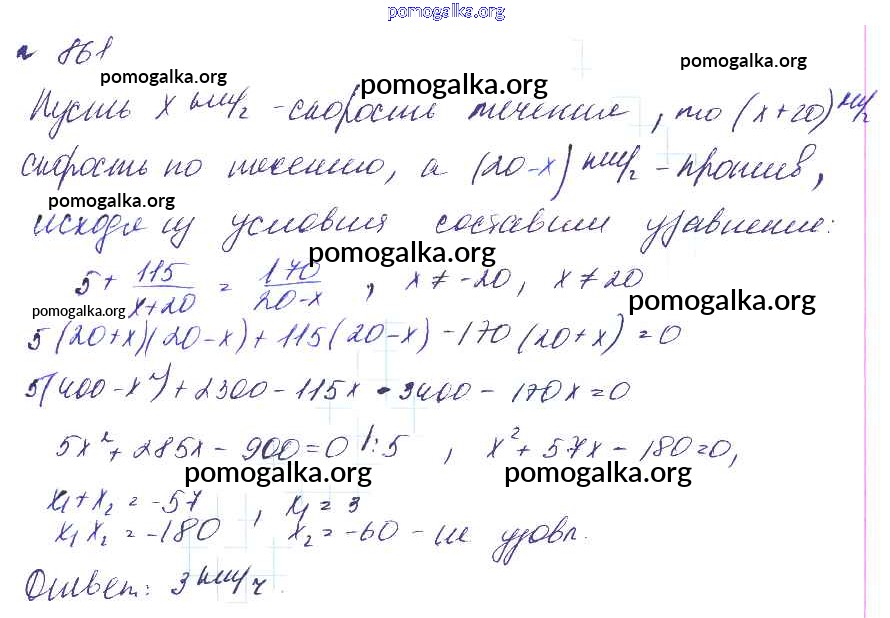 pomogalka.org
№ 861
pomogalka.org pomogalka.org pomogalka.org
Пусть x км/ч - скорость течения, то (x+20) км/ч
скорость по течению, а (20-x) км/ч - против,
pomogalka.org
исходя из условия составим уравнение:
pomogalka.org
5 + 115/(x+20) = 170/(20-x), x ≠ -20, x ≠ 20
pomogalka.org pomogalka.org
5(20+x)(20-x) + 115(20-x) - 170(20+x) = 0
5(400-x²) + 2300 - 115x - 3400 - 170x = 0
5x² + 285x - 900 = 0 |:5, x² + 57x - 180 = 0,
pomogalka.org pomogalka.org
x₁+x₂ = -57, x₁ = 3
x₁x₂ = -180 x₂ = -60 - не удовл.
Ответ: 3 км/ч.